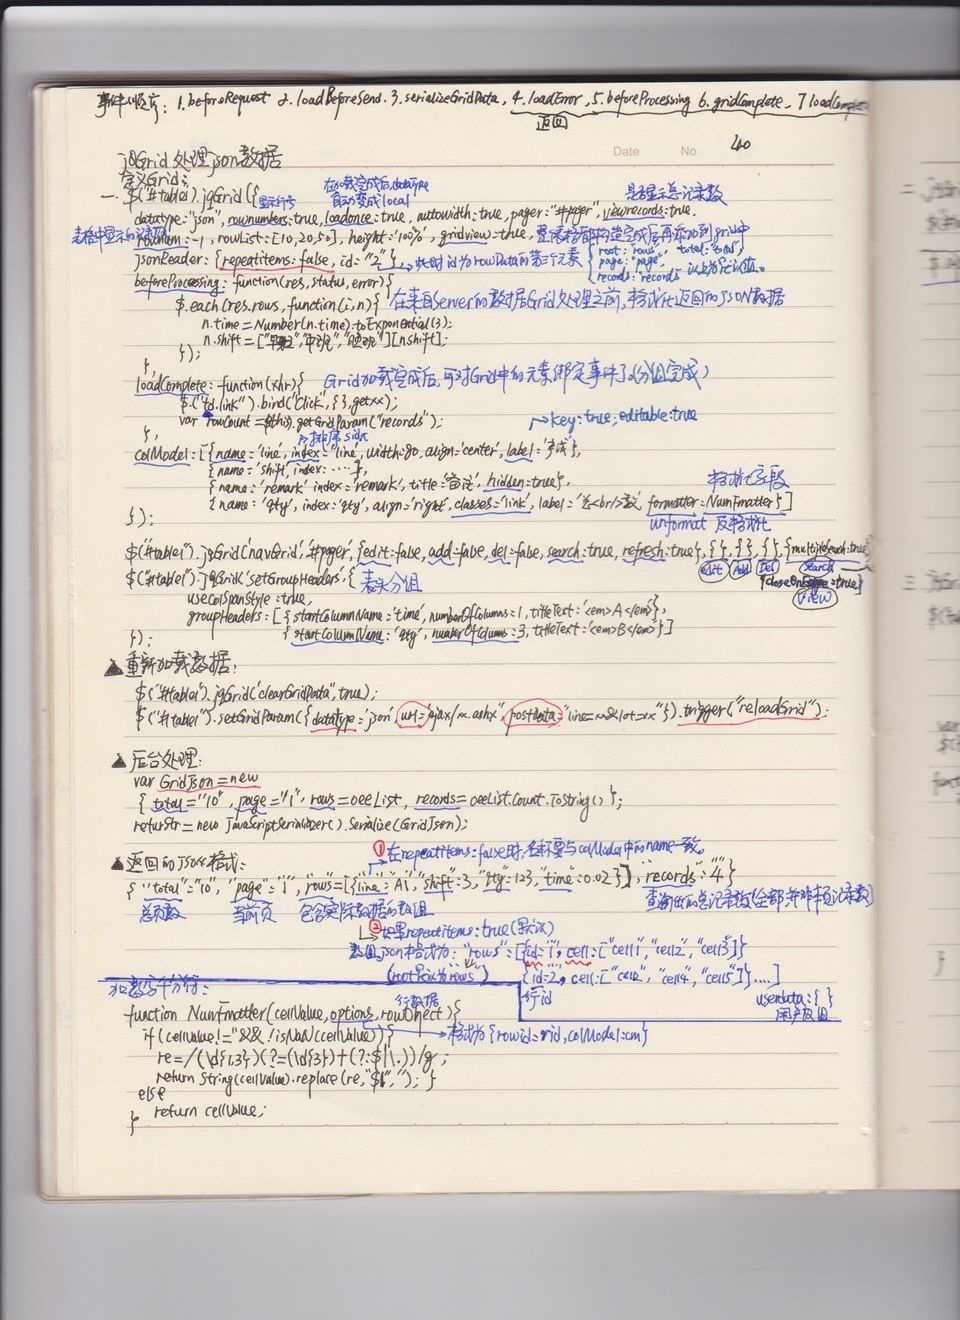 事件顺序: 1.beforeRequest 2.loadBeforeSend. 3.serializeGridData, 4.loadError, 5.beforeProcessing 6.gridComplete, 7 loadComplete
返回
Date No 40
jQGrid 处理json数据
定义Grid:
一. $("#table1").jqGrid({
显示行号
在加载完成后,dataType
自动变成local
是否显示总记录数
datatype="json", rownumbers=true, loadonce=true, autowidth=true, pager="#pager", viewrecords=true.
rownum=-1, rowList=[10,20,50], height='100%', gridview=true, 整表格都构造完成后再添加到grid中
jsonReader: {repeatitems: false, id="2"} 此时id为rowData的第三个元素
{ root: "rows", total: "total"
page: "page",
records: "records" 以上为默认值。
beforeProcessing: function(res, status, error){
$.each(res.rows, function(i,n){ 在来自server的数据Grid处理之前,格式化返回的JSON数据
n.time=Number(n.time).toExponential(3);
n.shift=["早班","中班","晚班"][n.shift];
});
},
loadComplete: function(xhr){ Grid加载完成后,可对Grid中的元素绑定事件了(分组完成)
$.("td.link").bind('Click',{},getxx);
var rowCount=$(this).getGridParam("records");
},
排序 sidx
key: true, editable: true
colModel: [{name='line', index='line', width=80, align='center', label='产线'},
{name='shift', index=.....},
{name='remark' index='remark', title='备注', hidden=true},
格式化字段
{name='qty', index='qty', align='right', classes='link', label='总<br/>数', formatter=NumFmatter}]
unformat 反格式化
});
$("#table1").jqGrid('navGrid','#pager',{edit=false, add=false, del=false, search:true, refresh:true},{},{},{},{multipleSearch:true}
edit Add Del Search
$("#table1").jqGrid('setGroupHeaders',{ 表头分组
{closeOnEscape=true}
View
useColSpanStyle=true,
groupHeaders=[{startColumnName='time', numberOfColumns=1, titleText:'<em>A</em>'},
{startColumnName='qty', numberOfColumns=3, titleText:'<em>B</em>'}]
});
▲重新加载数据:
$("#table1").jqGrid('clearGridData',true);
$("#table1").setGridParam({datatype='json', url='ajax/~.ashx', postData="line=~&lot=xx"}).trigger("reloadGrid");
▲后台处理:
var GridJson=new
{ total="10", page="1", rows=oeeList, records=oeeList.Count.ToString() };
returStr=new JavaScriptSerializer().Serialize(GridJson);
① 在repeatitems=false时,名称要与colModel中的name一致。
▲返回的json格式:
{"total"="10", "page"="1", "rows"=[{"line"=A1, "shift"=3, "qty"=123, "time"=0.02}], "records"="4"}
总页数 当前页 包含实际数据的数组 查询出的总记录数(全部,并非本页记录数)
② 如果repeatitems:true(默认)
数组json格式为: "rows"=[{id="1", cell=["cell1","cell2","cell3"]}
(root默认为rows) {id=2, cell:["cell2","cell4","cell5"]}....]
加数字千分符:
行id
userdata:{}
用户数组
行数据
function NumFmatter(cellValue, options, rowObject){
格式为{rowid=rid,colModel=cm}
if(cellValue!=''&& !isNaN(cellValue)){
re=/(\d{1,3})(?=(\d{3})+(?:$|\.))/g;
return String(cellValue).replace(re,"$1,"); }
else
return cellValue;
}